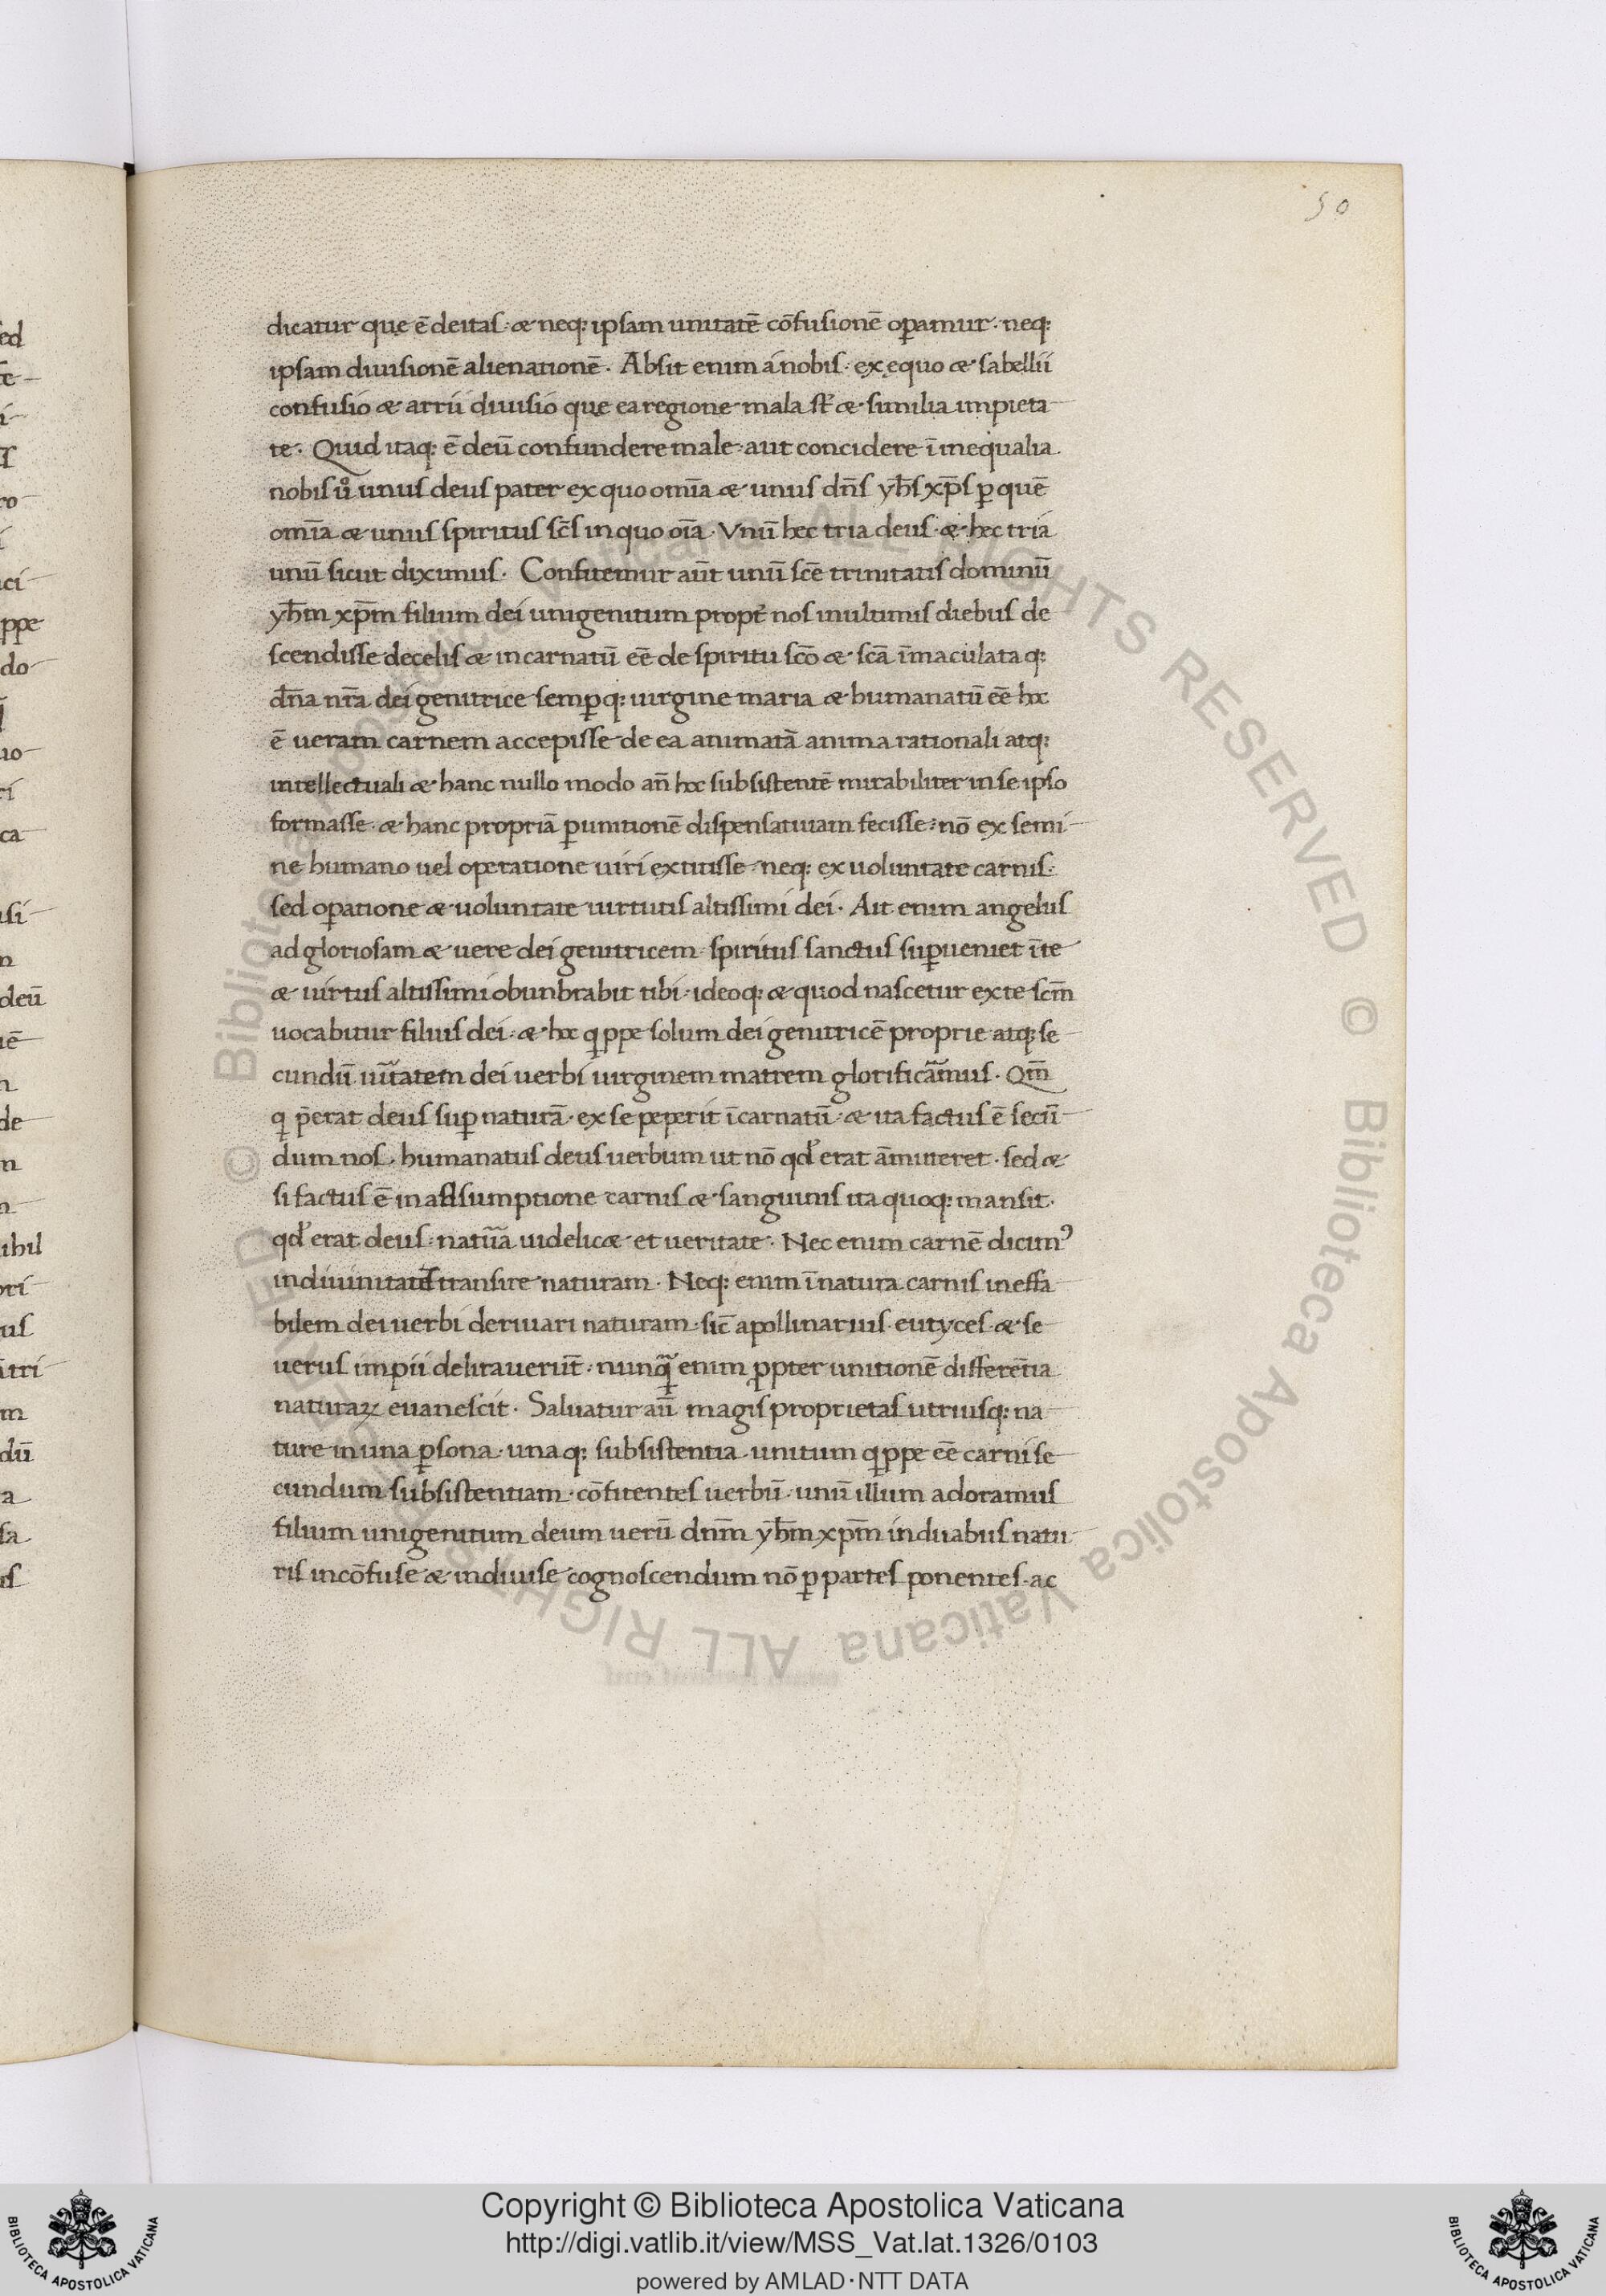 50
dicatur quę ē deitas · & neq; ipsam unitatē cōfusionē oꝑamur · neq;
ipsam diuisionē alienationē · Absit enim a nobis · ex ęquo & sabellii
confusio & arrii diuisio quę ea regione mala st̄ & similia impieta
te · Quid itaq; ē deū confundere male · aut concidere ī inequalia
nobis uͦ unus deus pater ex quo omīa & unus dn̄s yh̄s xp̄s ꝑ quē
omīa & unus spiritus sc̄s in quo oīa · Vnū hec tria deus · & hec tria
unū sicut diximus · Confitemur aūt unū scē trinitatis dominū
yh̄m xp̄m filium dei unigenitum propt̄ nos in ultimis diebus de
scendisse de celis & incarnatū eē de spiritu scō & scā īmaculataq;
dn̄a nr̄a dei genitrice semꝑq; uirgine maria & humanatū eē hoc
ē ueram carnem accepisse de ea animatā anima rationali atq;
intellectuali & hanc nullo modo an̄ hoc subsistentē mirabiliter in se ipso
formasse · & hanc propriā ꝑ unitionē dispensatiuam fecisse · nō ex semi
ne humano uel operatione uiri extitisse · neq; ex uoluntate carnis ·
sed oꝑatione & uoluntate uirtutis altissimi dei · Ait enim angelus
ad gloriosam & uere dei genitricem · spiritus sanctus suꝑueniet ī te
& uirtus altissimi obunbrabit tibi · ideoq; & quod nascetur ex te scm̄
uocabitur filius dei · & hoc qppe solum dei genitricē proprie atq; se
cundū uīatem dei uerbi uirginem matrem glorificāmus · Qm̄
q p̄erat deus suꝑ naturā · ex se peperit īcarnatū · & ita factus ē secū
dum nos · humanatus deus uerbum ut nō qd̓ erat āmitteret · sed &
si factus ē in assumptione carnis & sanguinis ita quoq; mansit ·
qd̓ erat deus · natūa uidelic& et ueritate · Nec enim carnē dicimꝰ
in diuinitatē transire naturam · Neq; enim ī natura carnis ineffa
bilem dei uerbi deriuari naturam · sic̄ apollinarius · eutyces & se
uerus impii delirauerūt · nunq̄ enim ꝓpter unitionē differētia
naturaꝝ euanescit · Saluatur aū magis proprietas utriusq; na
ture in una ꝑsona · unaq; subsistentia · unitum qppe eē carni se
cundum subsistentiam · cōfitentes uerbū · unū illum adoramus
filium unigenitum deum uerū dnm̄ yh̄m xpm̄ in duabus natu
ris incōfuse & indiuise cognoscendum nō ꝑ partes ponentes · ac
Copyright © Biblioteca Apostolica Vaticana
http://digi.vatlib.it/view/MSS_Vat.lat.1326/0103
powered by AMLAD·NTT DATA